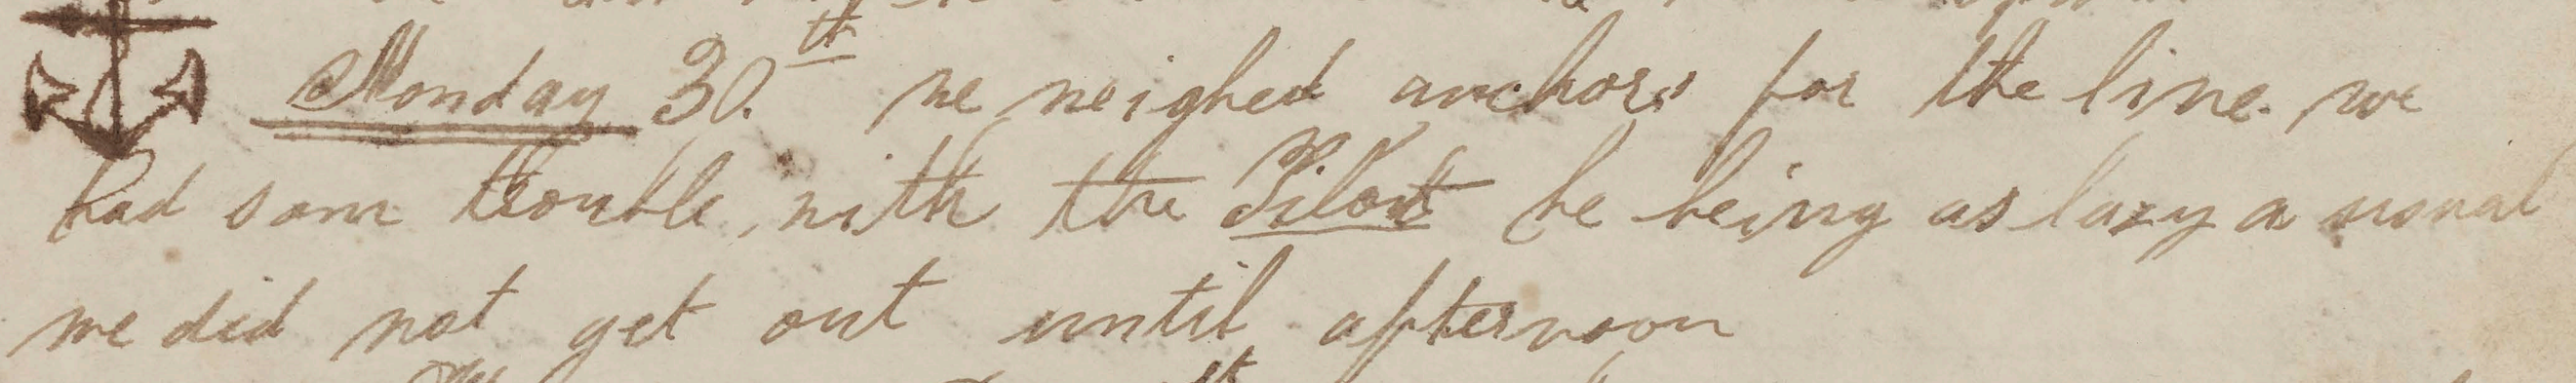 Monday 30.th we weighed anchors for the line. we
had som trouble, with the Pilot he being as lazy a usual
we did not get out until afternoon